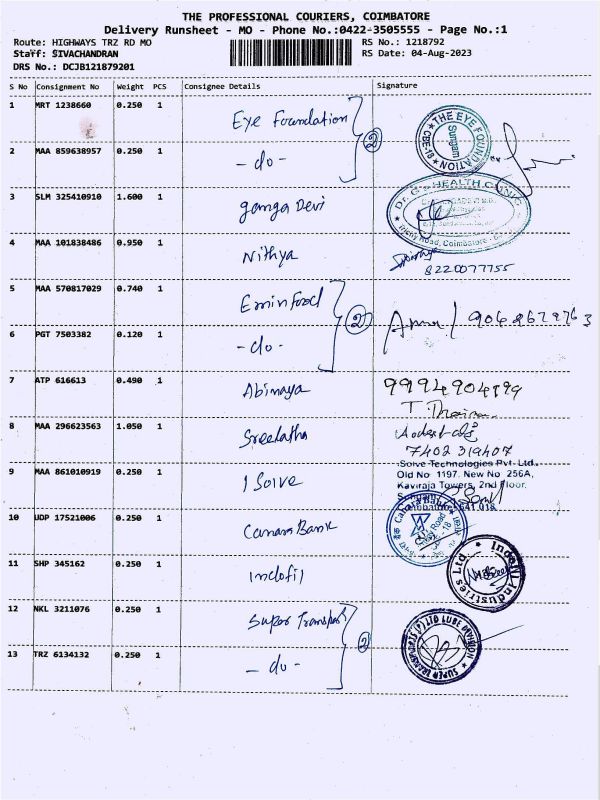 THE PROFESSIONAL COURIERS, COIMBATORE
Delivery Runsheet - MO - Phone No.:0422-3505555 - Page No.:1
Route: HIGHWAYS TRZ RD MO RS No.: 1218792
Staff: SIVACHANDRAN RS Date: 04-Aug-2023
DRS No.: DCJB121879201
S No Consignment No Weight PCS Consignee Details Signature
1 MRT 1238660 0.250 1 Eye Foundation
THE EYE FOUNDATION
CBE-18
Sungam
2 MAA 859638957 0.250 1 - do -
2
3 SLM 325410910 1.600 1 Ganga Devi
Dr. G's HEALTH CLINIC
Trichy Road, Coimbatore
4 MAA 101838486 0.950 1 Nithya
8220077755
5 MAA 570817029 0.740 1 Emin food
2
6 PGT 7503382 0.120 1 - do -
7 ATP 616613 0.490 1 Abinaya
8 MAA 296623563 1.050 1 Sreelatha
7402319407
9 MAA 861010919 0.250 1 I Solve
iSolve Technologies Pvt. Ltd.,
Old No. 1197, New No. 256A,
Kaviraja Towers, 2nd Floor,
Coimbatore - 641 018.
10 UDP 17521006 0.250 1 Canara Bank
Canara Bank
11 SHP 345162 0.250 1 Indofil
Indofil Industries Ltd
12 NKL 3211076 0.250 1 Super Transport
SUPER TRANSPORTS (P) LTD LUBE DIVISION
13 TRZ 6134132 0.250 1 - do -
2